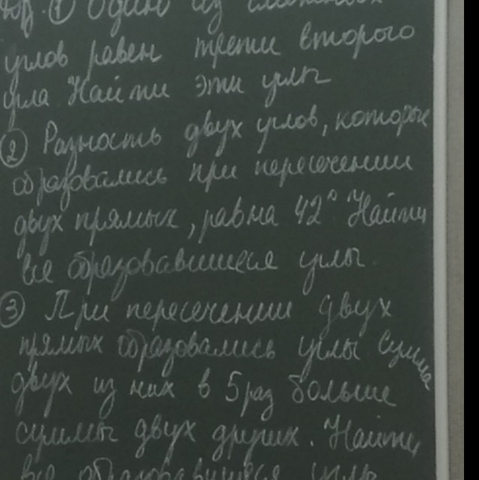 ① Один из смежных
углов равен трети второго
угла Найти эти углы
② Разность двух углов, которые
образовались при пересечении
двух прямых, равна 42° Найти
все образовавшиеся углы
③ При пересечении двух
прямых образовались углы Сумма
двух из них в 5 раз больше
суммы двух других. Найти
все образовавшиеся углы